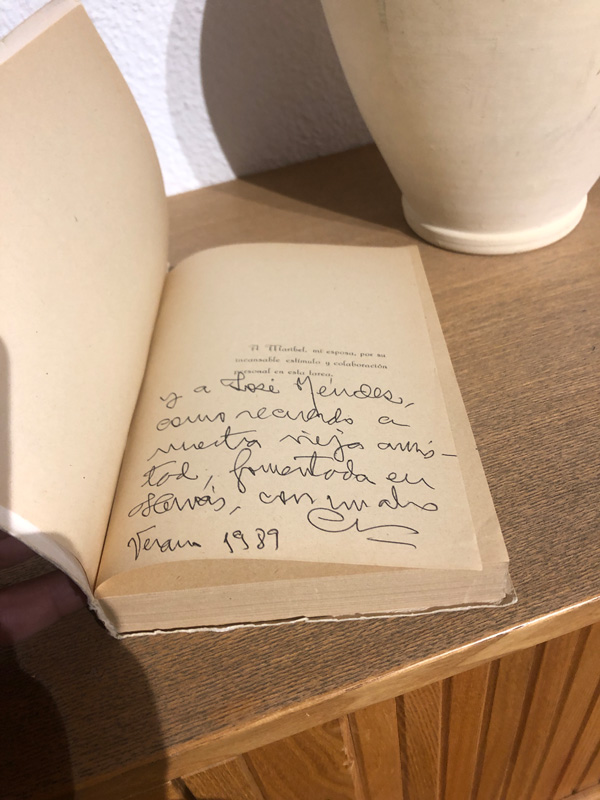 A Maribel, mi esposa, por su
incansable estímulo y colaboración
personal en esta tarea.
y a José Méndes,
como recuerdo a
nuestra vieja amis-
tad, fomentada en
Hervás, con un abrazo
Verano 1989